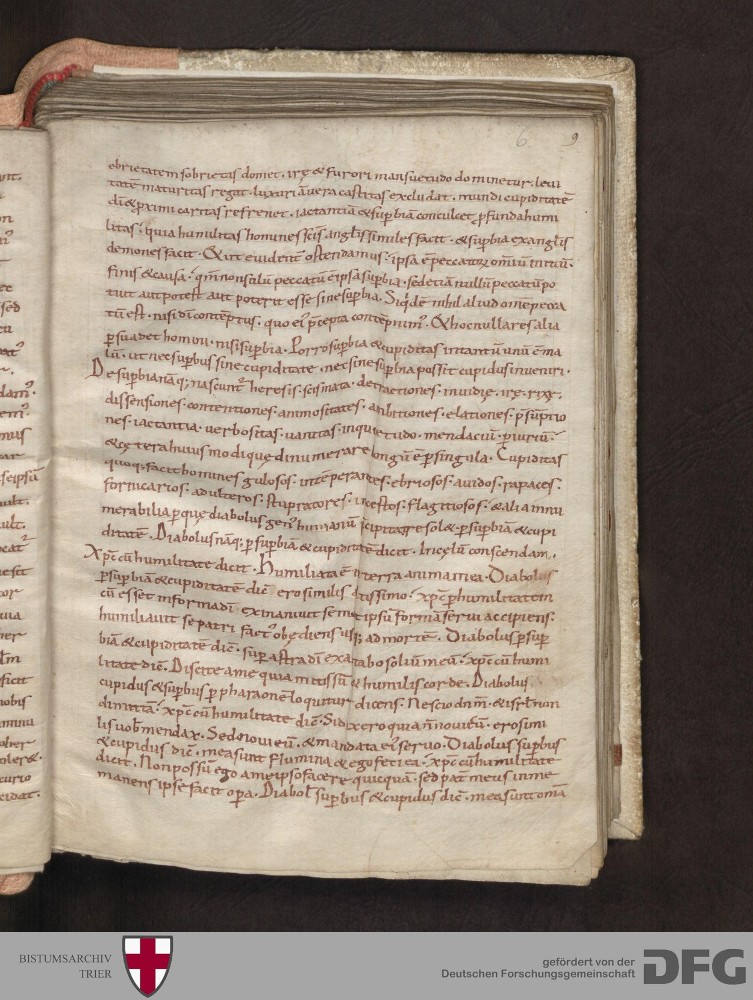 6 9
ebrietatem sobrietas domet. irę & furori mansuetudo dominetur. levi
tatē maturitas regat. luxuriā vera castitas excludat. mundi cupiditatē
dī & proximi caritas refrenet. iactantiā & supbiā conculcet pfunda humi
litas. quia humilitas homines scīs anglis similes facit. & supbia ex anglis
demones facit. & ut evidentē ostendamus. ipsa ē peccatorū omniū initiū.
finis & causa. qm̄ non solū peccatū ē ipsa supbia. sed etiā nullū peccatū po
tuit aut potest aut poterit esse sine supbia. Siqdē nihil aliud omne pecca
tū est. nisi dī contēptus. quo eiꝰ pcepta contēpnimꝰ. & hoc nulla res alia
psuadet homini. nisi supbia. Porro supbia & cupiditas intantū unū ē ma
lū. ut nec supbus sine cupiditate. nec sine supbia possit cupidus inveniri.
De supbia nāq; nascuntꝰ heresis. scismata. detractiones. invidię. irę. rixę.
dissensiones. contentiones. animositates. ambitiones. elationes. psūptio
nes. iactantia. verbositas. vanitas. inquietudo. mendaciū. piuriū.
& cętera huiusmodi que dinumerare longū ē p singula. Cupiditas
quoq. facit homines gulosos. intēperantes. ebriosos. avidos. rapaces.
fornicarios. adulteros. stupratores. incestos. flagitiosos. & alia innu
merabilia p quę diabolus genꝰ humanū
ditatē. Diabolus nāq; p supbiā & cupiditatē dicit. In cęlū conscendam.
Xpc cū humilitate dicit. Humiliata ē in terra anima mea. Diabolus
p supbiā & cupiditatē dic̄. ero similis altissimo. xpc p humilitatē in
cū esset in forma dī exinanivit semet ipsū formā servi accipiens.
humiliavit se patri factꝰ obędiens usq; ad mortē. Diabolus p sup
biā & cupiditatē dic̄. sup astra dī exaltabo soliū meū. xpc cū humi
litate dic̄. Discite a me quia mitis sū & humilis corde. Diabolus
cupidus & supbus p pharaonē loquitur dicens. Nescio dnm̄. & isrl non
dimittā. xpc cū humilitate dic̄. Si dixero quia n̄ novi eū. ero simi
lis vob mendax. Sed novi eū. & mandata eiꝰ servo. Diabolus supbus
& cupidus dic̄. mea sunt flumina & ego feci ea. xpc cū humilitate
dicit. Non possū ego a me ipso facere quicquā. sed pat meus in me
manens ipse facit opa. Diabol supbus & cupidus dic̄. mea sunt omā
BISTUMSARCHIV
TRIER
gefördert von der
Deutschen Forschungsgemeinschaft
DFG